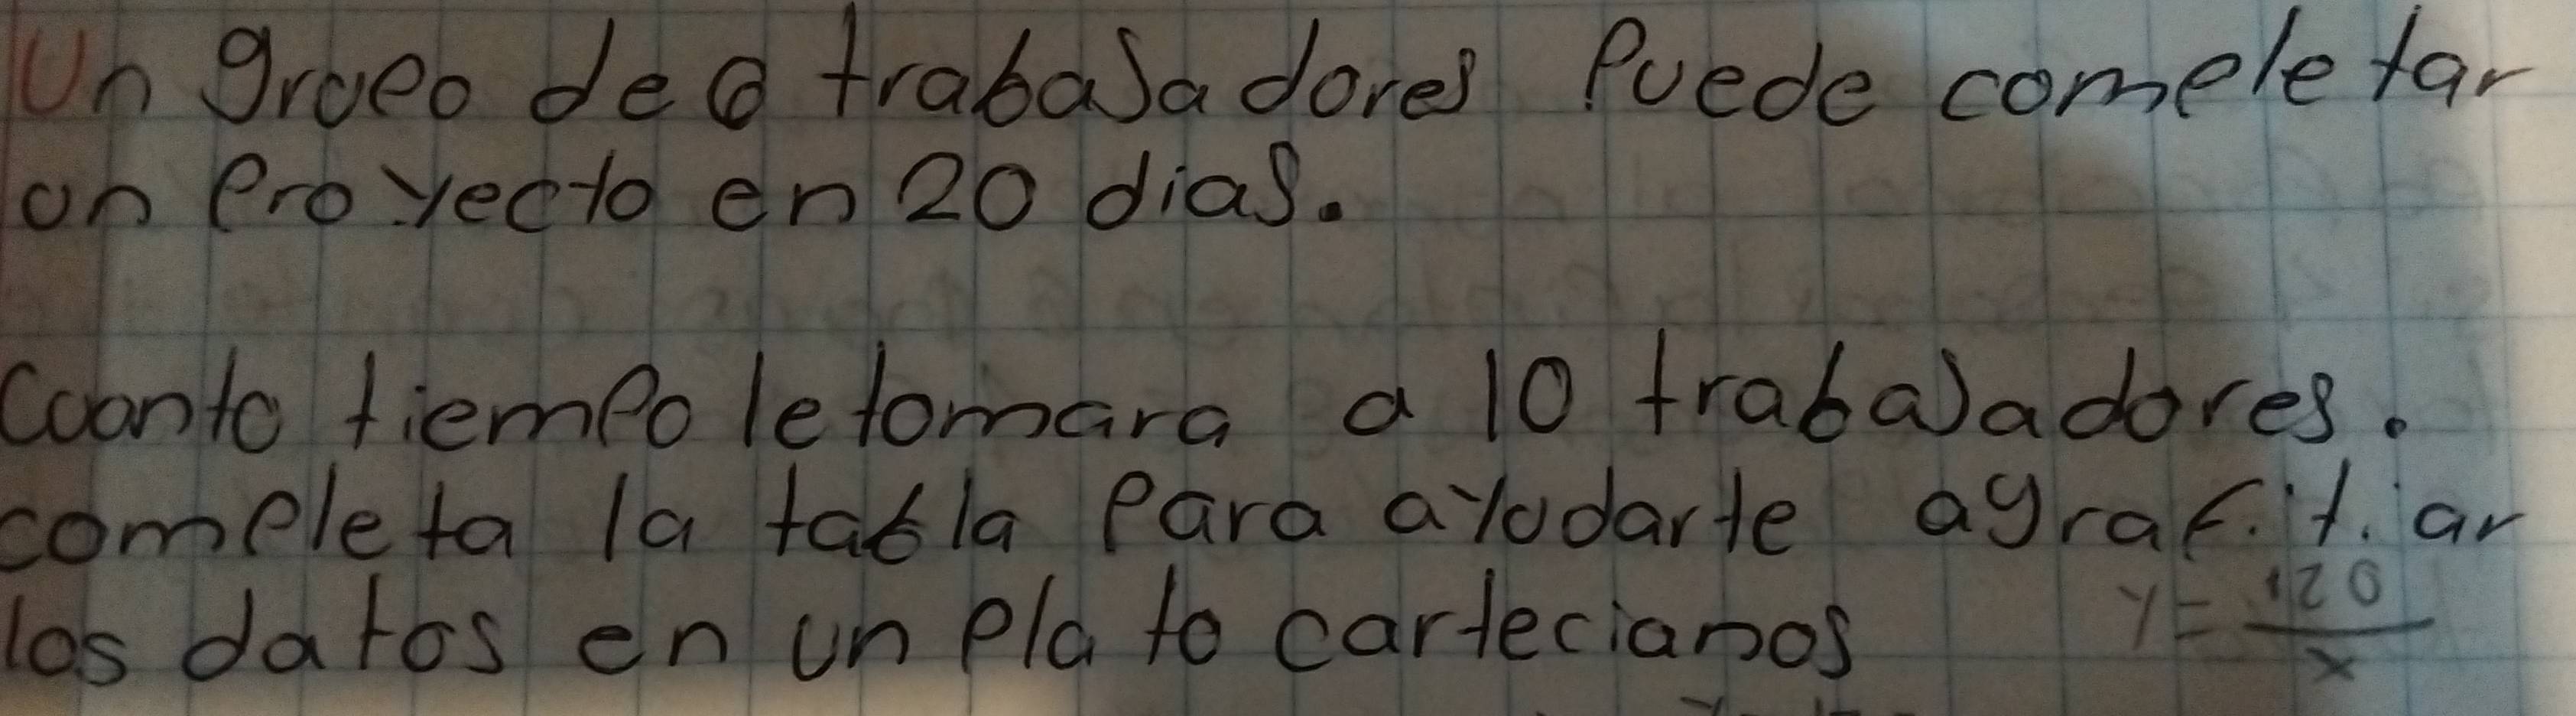 Un grupo de 6 trabajadores Puede completar
un Proyecto en 20 dias.
Cuanto tiempo le tomara a 10 trabajadores.
completa la tabla Para ayudarte a grafitiar
los datos en un plato cartecianos
y = 120 / x